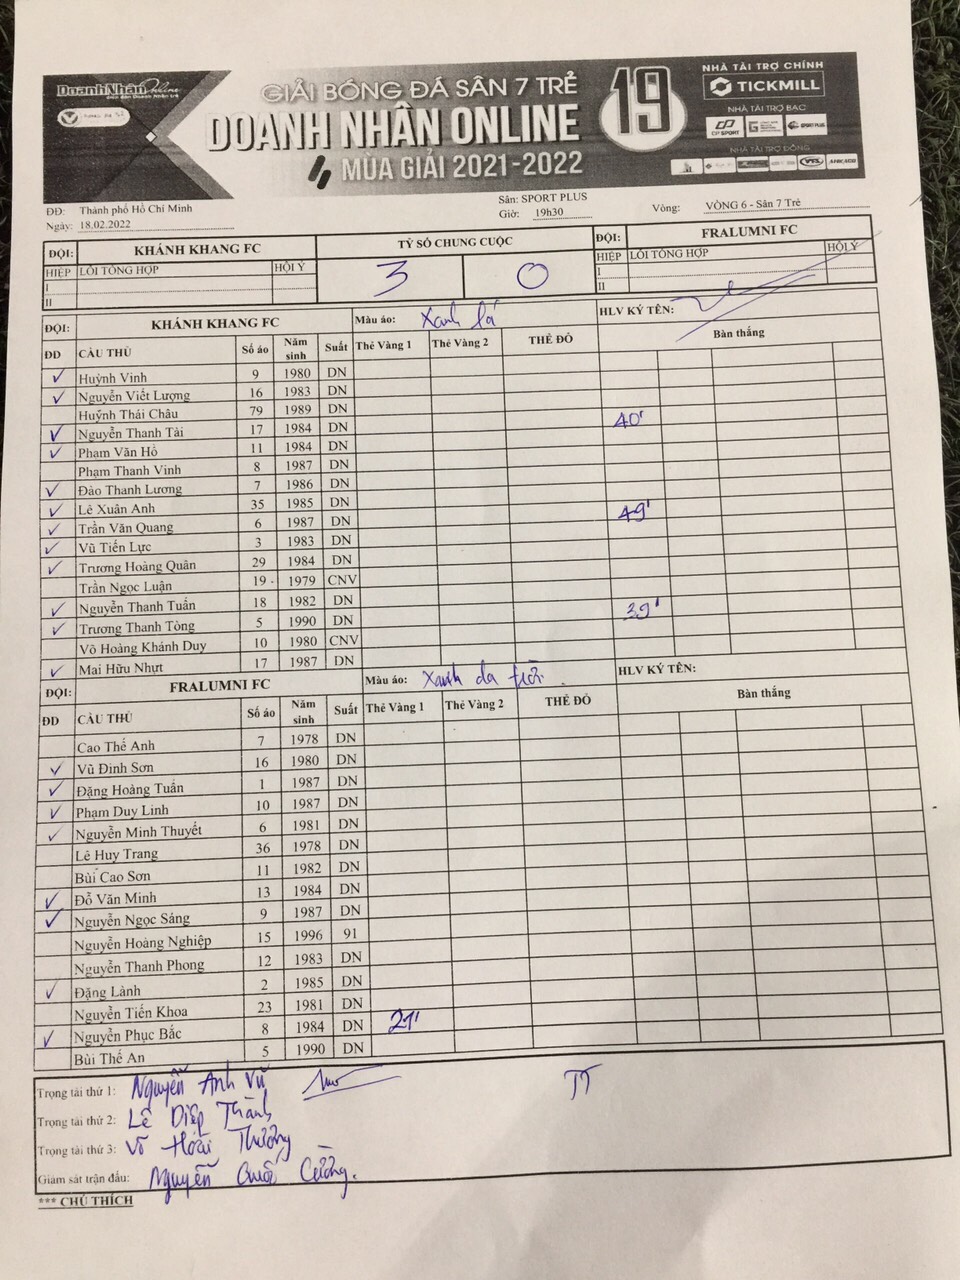 DoanhNhân Online
GIẢI BÓNG ĐÁ SÂN 7 TRẺ
DOANH NHÂN ONLINE
MÙA GIẢI 2021-2022
19
NHÀ TÀI TRỢ CHÍNH
TICKMILL
NHÀ TÀI TRỢ BẠC
CP SPORT
SPORT PLUS
NHÀ TÀI TRỢ ĐỒNG
VFS AFRICACO
ĐĐ: Thành phố Hồ Chí Minh Sân: SPORT PLUS
Ngày: 18.02.2022 Giờ: 19h30 Vòng: VÒNG 6 - Sân 7 Trẻ
ĐỘI: KHÁNH KHANG FC TỶ SỐ CHUNG CUỘC ĐỘI: FRALUMNI FC
HIỆP LỖI TỔNG HỢP HỘI Ý 3 0 HIỆP LỖI TỔNG HỢP HỘI Ý
I I
II II
ĐỘI: KHÁNH KHANG FC Màu áo: Xanh lá HLV KÝ TÊN:
ĐD CẦU THỦ Số áo Năm sinh Suất Thẻ Vàng 1 Thẻ Vàng 2 THẺ ĐỎ Bàn thắng
✓ Huỳnh Vinh 9 1980 DN
✓ Nguyễn Viết Lượng 16 1983 DN
Huỳnh Thái Châu 79 1989 DN
✓ Nguyễn Thanh Tài 17 1984 DN 40'
✓ Phạm Văn Hổ 11 1984 DN
Phạm Thanh Vinh 8 1987 DN
✓ Đào Thanh Lương 7 1986 DN
✓ Lê Xuân Anh 35 1985 DN
✓ Trần Văn Quang 6 1987 DN 49'
✓ Vũ Tiến Lực 3 1983 DN
✓ Trương Hoàng Quân 29 1984 DN
Trần Ngọc Luận 19 1979 CNV
✓ Nguyễn Thanh Tuấn 18 1982 DN
✓ Trương Thanh Tòng 5 1990 DN 39'
Võ Hoàng Khánh Duy 10 1980 CNV
✓ Mai Hữu Nhựt 17 1987 DN
ĐỘI: FRALUMNI FC Màu áo: Xanh da trời. HLV KÝ TÊN:
ĐD CẦU THỦ Số áo Năm sinh Suất Thẻ Vàng 1 Thẻ Vàng 2 THẺ ĐỎ Bàn thắng
Cao Thế Anh 7 1978 DN
✓ Vũ Đình Sơn 16 1980 DN
✓ Đặng Hoàng Tuấn 1 1987 DN
✓ Phạm Duy Linh 10 1987 DN
✓ Nguyễn Minh Thuyết 6 1981 DN
Lê Huy Trang 36 1978 DN
Bùi Cao Sơn 11 1982 DN
✓ Đỗ Văn Minh 13 1984 DN
✓ Nguyễn Ngọc Sáng 9 1987 DN
Nguyễn Hoàng Nghiệp 15 1996 91
Nguyễn Thanh Phong 12 1983 DN
✓ Đặng Lành 2 1985 DN
Nguyễn Tiến Khoa 23 1981 DN
✓ Nguyễn Phục Bắc 8 1984 DN 21'
Bùi Thế An 5 1990 DN
Trọng tài thứ 1: Nguyễn Anh Vũ TT
Trọng tài thứ 2: Lê Diệp Thành
Trọng tài thứ 3: Võ Hoài Thương
Giám sát trận đấu: Nguyễn Quốc Cường.
*** CHÚ THÍCH